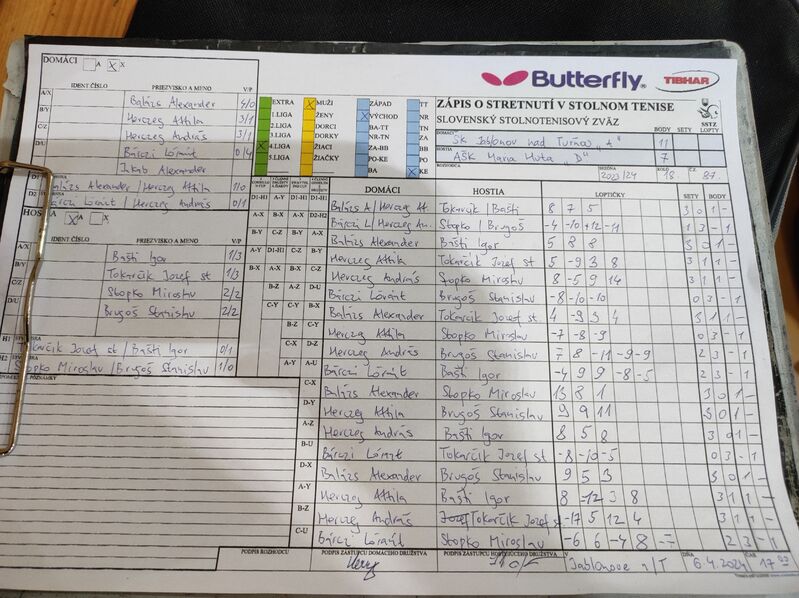 DOMÁCI A X X
IDENT ČÍSLO PRIEZVISKO A MENO V/P
A/X Balázs Alexander 4/0
B/Y Herczeg Attila 3/1
C/Z Herczeg András 3/1
D/U Bárczi Lóránt 0/4
Jakab Alexander
D1 Balázs Alexander / Herczeg Attila 1/0
D2 Bárczi Lóránt / Herczeg András 0/1
HOSTIA X A X
IDENT ČÍSLO PRIEZVISKO A MENO V/P
A/X Bašti Igor 1/3
B/Y Tokarčík Jozef st 1/3
C/Z Stopko Miroslav 2/2
D/U Brugoš Stanislav 2/2
H1 Tokarčík Jozef st / Bašti Igor 0/1
H2 Stopko Miroslav / Brugoš Stanislav 1/0
POZNÁMKY
EXTRA X MUŽI ZÁPAD TT
1.LIGA ŽENY X VÝCHOD NR
2.LIGA DORCI BA-TT TN
3.LIGA DORKY NR-TN ZA
X 4.LIGA ŽIACI ZA-BB BB
5.LIGA ŽIAČKY PO-KE PO
BA X KE
Butterfly TIBHAR
ZÁPIS O STRETNUTÍ V STOLNOM TENISE
SLOVENSKÝ STOLNOTENISOVÝ ZVÄZ
SSTZ
BODY SETY LOPTY
DOMÁCI ŠK Jablonov nad Turňou „A" 11
HOSTIA AŠK Mária Huta „D" 7
ROZHODCA SEZÓNA 2023/24 KOLO 18 Č.Z. 87.
DOMÁCI HOSTIA LOPTIČKY SETY BODY
D1-H1 Balázs A / Herczeg At. Tokarčík / Bašti 8 7 5 3 0 1 -
D2-H2 Bárczi L / Herczeg An. Stopko / Brugoš -4 -10 +12 -11 1 3 - 1
A-X Balázs Alexander Bašti Igor 5 8 8 3 0 1 -
B-Y Herczeg Attila Tokarčík Jozef st 5 -9 3 8 3 1 1 -
C-Z Herczeg András Stopko Miroslav 8 -5 9 14 3 1 1 -
D-U Bárczi Lóránt Brugoš Stanislav -8 -10 -10 0 3 - 1
Balázs Alexander Tokarčík Jozef st 4 -9 3 4 3 1 1 -
Herczeg Attila Stopko Miroslav -7 -8 -9 0 3 - 1
Herczeg András Brugoš Stanislav 7 8 -11 -9 -9 2 3 - 1
A-U Bárczi Lóránt Bašti Igor -4 9 9 -8 -5 2 3 - 1
C-X Balázs Alexander Stopko Miroslav 13 8 1 3 0 1 -
D-Y Herczeg Attila Brugoš Stanislav 9 9 11 3 0 1 -
A-Z Herczeg András Bašti Igor 8 5 8 3 0 1 -
B-U Bárczi Lóránt Tokarčík Jozef st -8 -10 -5 0 3 - 1
D-X Balázs Alexander Brugoš Stanislav 9 5 3 3 0 1 -
A-Y Herczeg Attila Bašti Igor 8 -12 3 8 3 1 1 -
B-Z Herczeg András Tokarčík Jozef st -17 5 12 4 3 1 1 -
C-U Bárczi Lóránt Stopko Miroslav -6 6 -4 8 -7 2 3 - 1
PODPIS ROZHODCU PODPIS ZÁSTUPCU DOMÁCEHO DRUŽSTVA PODPIS ZÁSTUPCU HOSŤUJÚCEHO DRUŽSTVA V Jablonove n/T DŇA 6.4.2024 ČAS 17 00